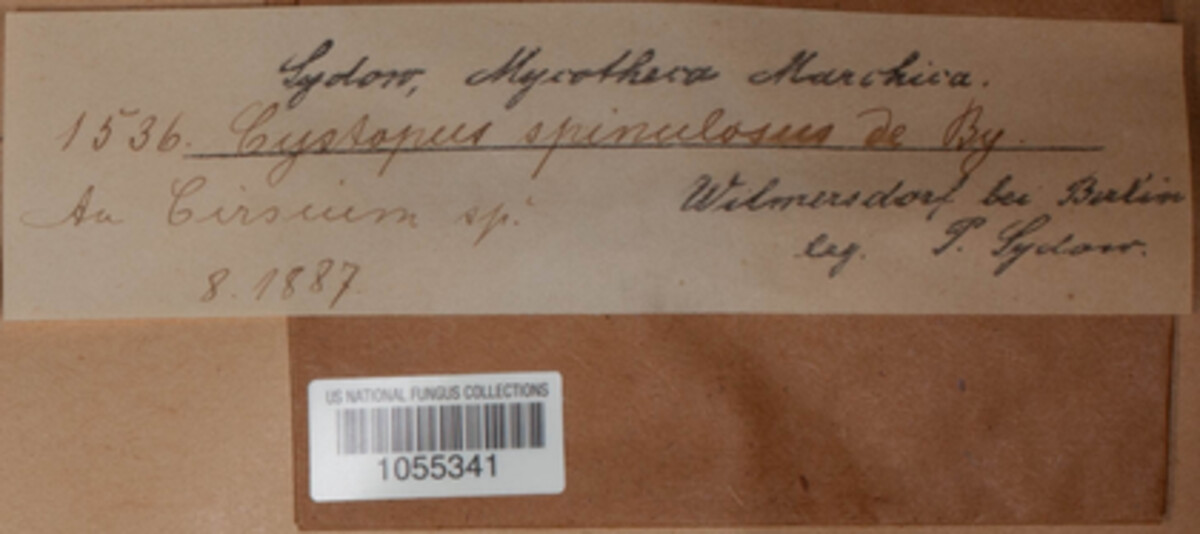 Sydow, Mycotheca Marchica.
1536. Cystopus spinulosus de By.
An Cirsium sp.
Wilmersdorf bei Berlin
leg. P. Sydow.
8. 1887
US NATIONAL FUNGUS COLLECTIONS
1055341